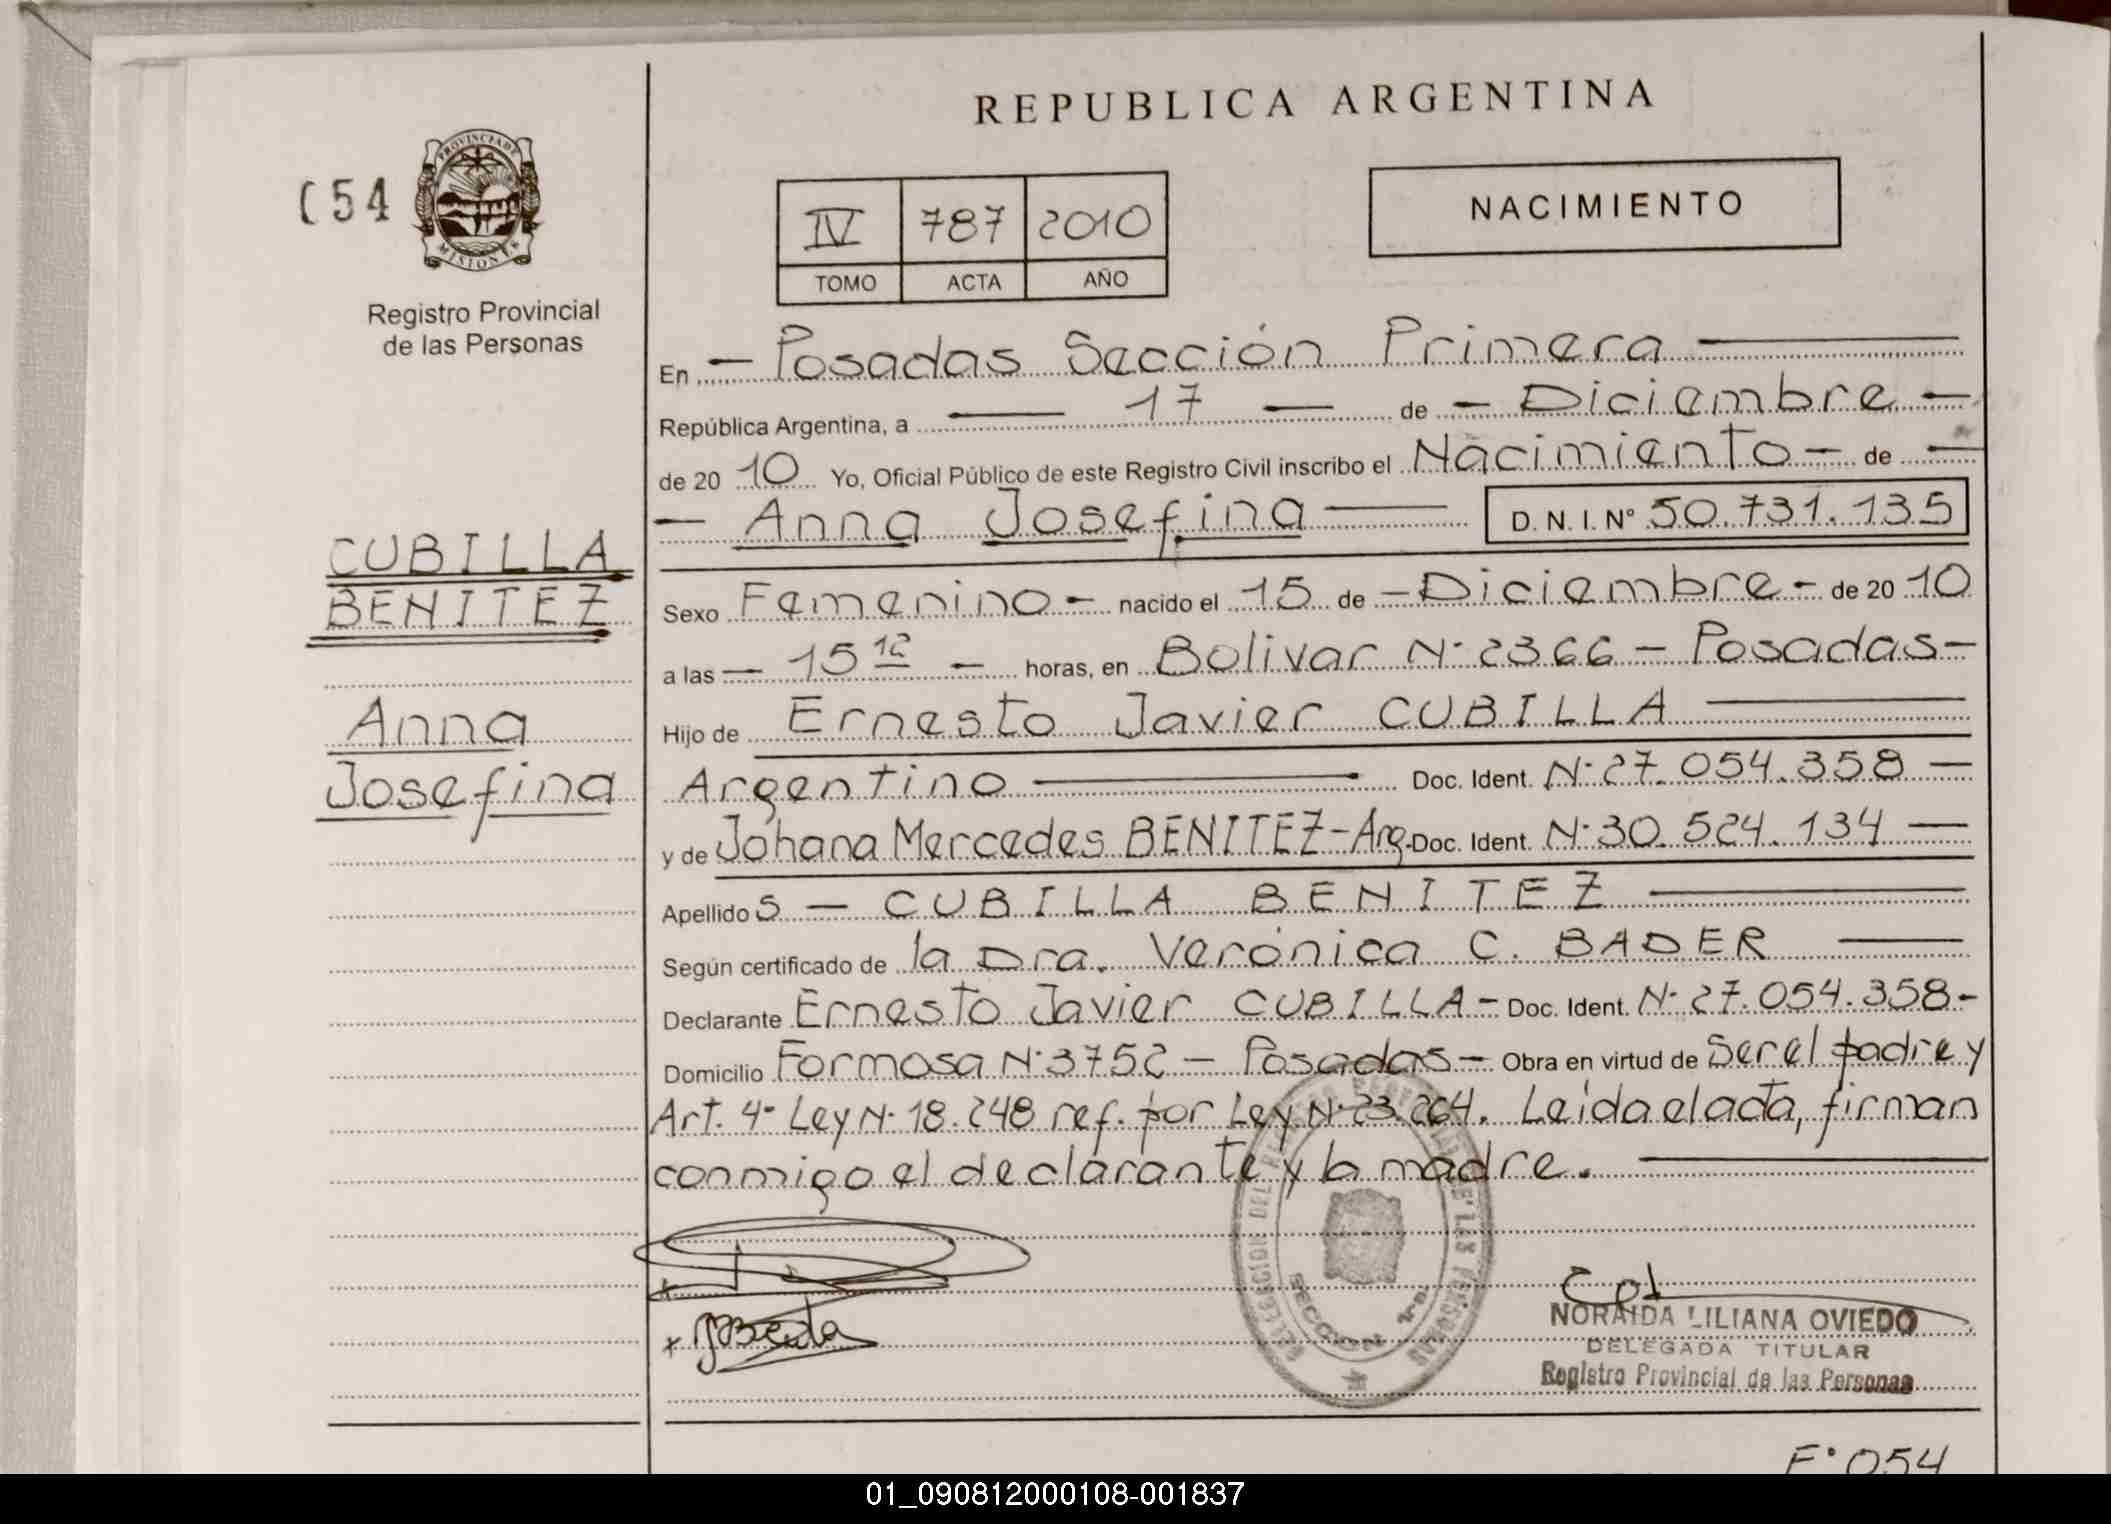 REPUBLICA ARGENTINA
054
PROVINCIA DE MISIONES
Registro Provincial
de las Personas
IV 787 2010
TOMO ACTA AÑO
NACIMIENTO
En — Posadas Sección Primera —
República Argentina, a — 17 — de — Diciembre —
de 20 10 Yo, Oficial Público de este Registro Civil inscribo el Nacimiento — de —
— Anna Josefina — D. N. I. N° 50.731.135
CUBILLA
BENITEZ
Anna
Josefina
Sexo Femenino — nacido el 15 de — Diciembre — de 20 10
a las — 15 12 — horas, en Bolivar N° 2366 — Posadas —
Hijo de Ernesto Javier CUBILLA —
Argentino — Doc. Ident. N° 27.054.358 —
y de Johana Mercedes BENITEZ - Arg. Doc. Ident. N° 30.524.134 —
Apellido s — CUBILLA BENITEZ —
Según certificado de la Dra. Verónica C. BADER —
Declarante Ernesto Javier CUBILLA — Doc. Ident. N° 27.054.358 -
Domicilio Formosa N° 3752 — Posadas — Obra en virtud de Ser el padre y
Art. 4° Ley N° 18.248 ref. por Ley N° 23.264. Leida el acta, firman
conmigo el declarante y la madre. —
SECCION 1ra.
NORAIDA LILIANA OVIEDO
DELEGADA TITULAR
Registro Provincial de las Personas
F° 054
01_090812000108-001837